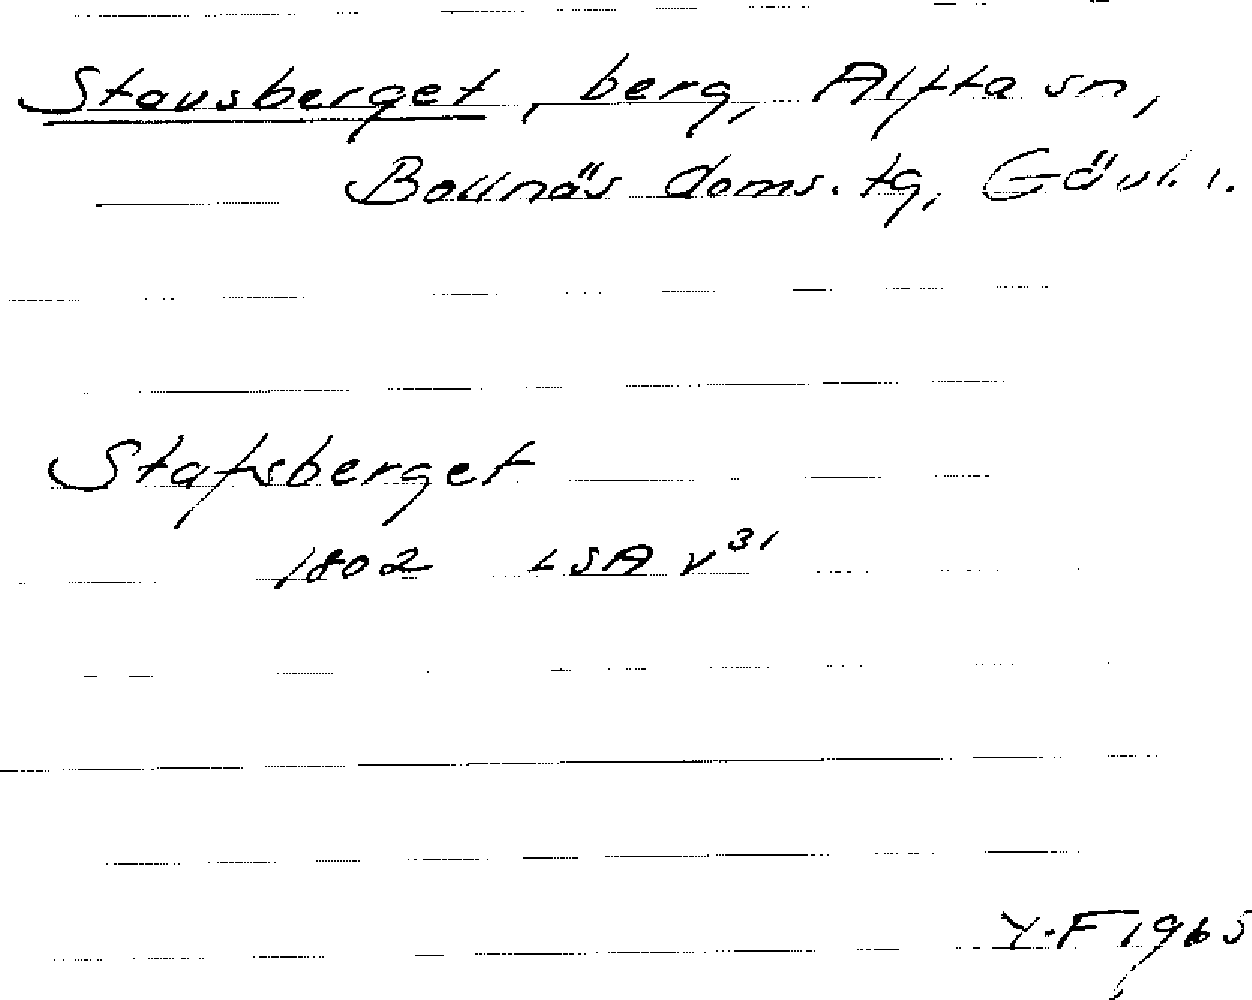 Stavsberget, berg, Alfta sn,
Bollnäs doms. tg, Gävl. l.
Stafsberget
1802 LSA V 31
Y-F 1965